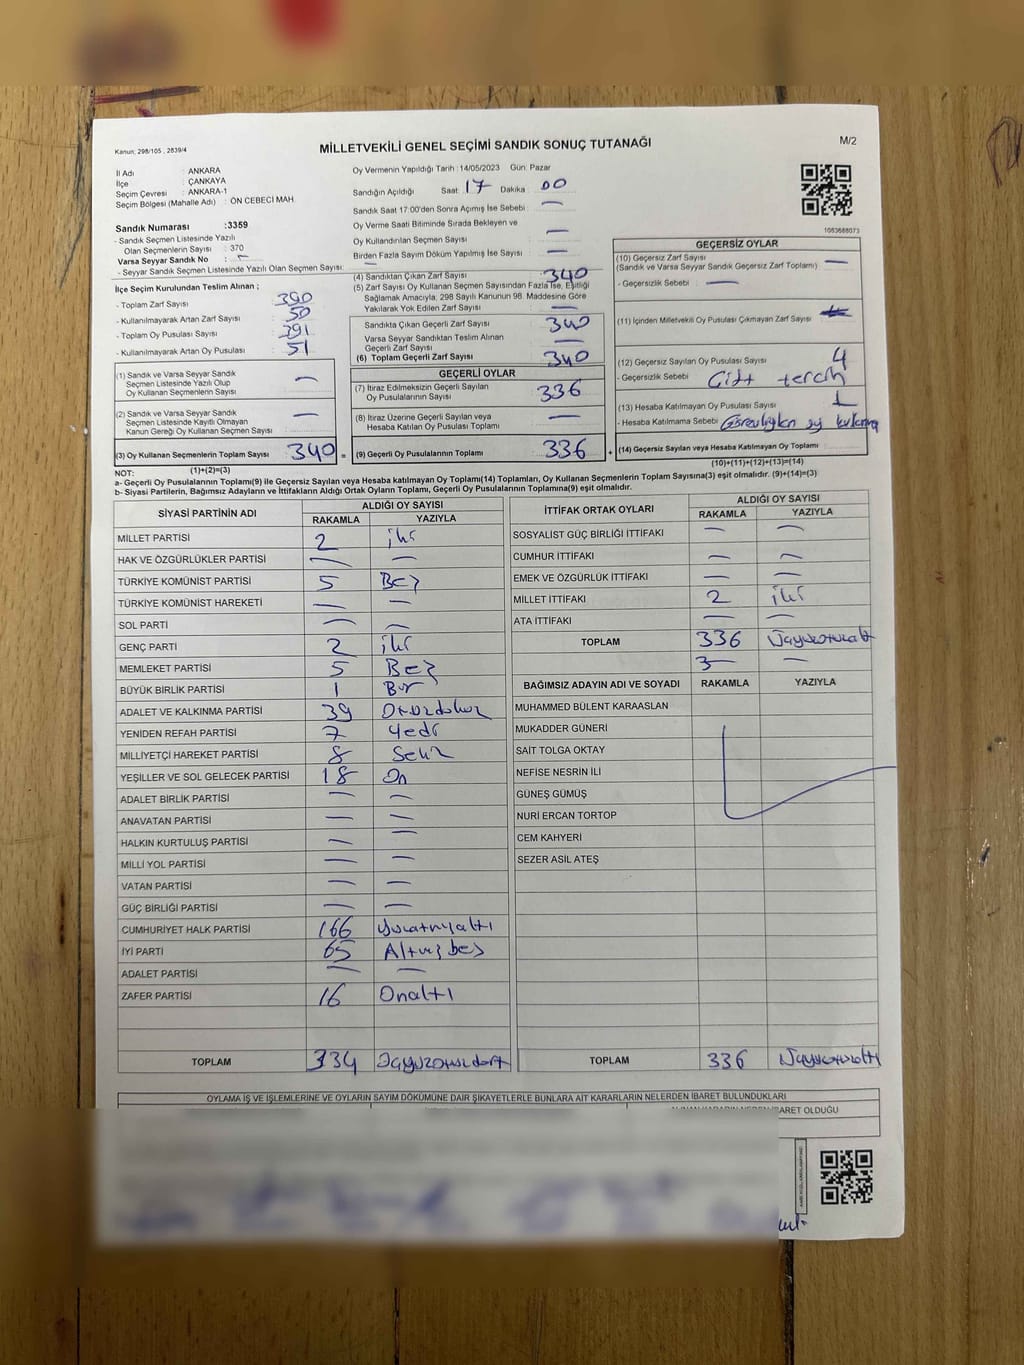 Kanun; 298/105 , 2839/4
MİLLETVEKİLİ GENEL SEÇİMİ SANDIK SONUÇ TUTANAĞI
M/2
İl Adı : ANKARA
İlçe : ÇANKAYA
Seçim Çevresi : ANKARA-1
Seçim Bölgesi (Mahalle Adı) : ÖN CEBECİ MAH.
Sandık Numarası :3359
- Sandık Seçmen Listesinde Yazılı
Olan Seçmenlerin Sayısı : 370
Varsa Seyyar Sandık No : –
- Seyyar Sandık Seçmen Listesinde Yazılı Olan Seçmen Sayısı: —
İlçe Seçim Kurulundan Teslim Alınan ;
- Toplam Zarf Sayısı : 390
- Kullanılmayarak Artan Zarf Sayısı : 50
- Toplam Oy Pusulası Sayısı : 391
- Kullanılmayarak Artan Oy Pusulası : 51
(1) Sandık ve Varsa Seyyar Sandık
Seçmen Listesinde Yazılı Olup
Oy Kullanan Seçmenlerin Sayısı —
(2) Sandık ve Varsa Seyyar Sandık
Seçmen Listesinde Kayıtlı Olmayan
Kanun Gereği Oy Kullanan Seçmen Sayısı —
(3) Oy Kullanan Seçmenlerin Toplam Sayısı 340 =
(1)+(2)=(3)
Oy Vermenin Yapıldığı Tarih :14/05/2023 Gün: Pazar
Sandığın Açıldığı Saat: 17 Dakika : 00
Sandık Saat 17:00'den Sonra Açımış İse Sebebi : —
Oy Verme Saati Bitiminde Sırada Bekleyen ve
Oy Kullandırılan Seçmen Sayısı —
Birden Fazla Sayım Döküm Yapılmış İse Sayısı —
(4) Sandıktan Çıkan Zarf Sayısı 340
(5) Zarf Sayısı Oy Kullanan Seçmen Sayısından Fazla İse, Eşitliği
Sağlamak Amacıyla, 298 Sayılı Kanunun 98. Maddesine Göre
Yakılarak Yok Edilen Zarf Sayısı —
Sandıkta Çıkan Geçerli Zarf Sayısı 340
Varsa Seyyar Sandıktan Teslim Alınan
Geçerli Zarf Sayısı —
(6) Toplam Geçerli Zarf Sayısı 340
GEÇERLİ OYLAR
(7) İtiraz Edilmeksizin Geçerli Sayılan
Oy Pusulalarının Sayısı 336
(8) İtiraz Üzerine Geçerli Sayılan veya
Hesaba Katılan Oy Pusulaları Toplamı —
(9) Geçerli Oy Pusulalarının Toplamı 336 +
1063688073
GEÇERSİZ OYLAR
(10) Geçersiz Zarf Sayısı
(Sandık ve Varsa Seyyar Sandık Geçersiz Zarf Toplamı) —
- Geçersizlik Sebebi : —
(11) İçinden Milletvekili Oy Pusulası Çıkmayan Zarf Sayısı
(12) Geçersiz Sayılan Oy Pusulası Sayısı 4
- Geçersizlik Sebebi : Çift tercih
(13) Hesaba Katılmayan Oy Pusulası Sayısı 1
- Hesaba Katılmama Sebebi : oy
(14) Geçersiz Sayılan veya Hesaba Katılmayan Oy Toplamı
(10)+(11)+(12)+(13)=(14)
NOT:
a- Geçerli Oy Pusulası Toplamı(9) ile Geçersiz Sayılan veya Hesaba katılmayan Oy Toplamı(14) Toplamları, Oy Kullanan Seçmenlerin Toplam Sayısına(3) eşit olmalıdır. (9)+(14)=(3)
b- Siyasi Partilerin, Bağımsız Adayların ve İttifakların Aldığı Ortak Oyların Toplamı, Geçerli Oy Pusulalarının Toplamına(9) eşit olmalıdır.
SİYASİ PARTİNİN ADI ALDIĞI OY SAYISI
RAKAMLA YAZIYLA
MİLLET PARTİSİ 2 iki
HAK VE ÖZGÜRLÜKLER PARTİSİ — —
TÜRKİYE KOMÜNİST PARTİSİ 5 Beş
TÜRKİYE KOMÜNİST HAREKETİ — —
SOL PARTİ — —
GENÇ PARTİ 2 iki
MEMLEKET PARTİSİ 5 Beş
BÜYÜK BİRLİK PARTİSİ 1 Bir
ADALET VE KALKINMA PARTİSİ 39 Otuzdokuz
YENİDEN REFAH PARTİSİ 7 Yedi
MİLLİYETÇİ HAREKET PARTİSİ 8 Sekiz
YEŞİLLER VE SOL GELECEK PARTİSİ 18 On
ADALET BİRLİK PARTİSİ — —
ANAVATAN PARTİSİ — —
HALKIN KURTULUŞ PARTİSİ — —
MİLLİ YOL PARTİSİ — —
VATAN PARTİSİ — —
GÜÇ BİRLİĞİ PARTİSİ — —
CUMHURİYET HALK PARTİSİ 166 Yüzatmışaltı
İYİ PARTİ 65 Altmışbeş
ADALET PARTİSİ — —
ZAFER PARTİSİ 16 Onaltı
TOPLAM 334 Üçyüzotuzdört
İTTİFAK ORTAK OYLARI ALDIĞI OY SAYISI
RAKAMLA YAZIYLA
SOSYALİST GÜÇ BİRLİĞİ İTTİFAKI — —
CUMHUR İTTİFAKI — —
EMEK VE ÖZGÜRLÜK İTTİFAKI — —
MİLLET İTTİFAKI 2 iki
ATA İTTİFAKI — —
TOPLAM 336 Üçyüzotuzaltı
BAĞIMSIZ ADAYIN ADI VE SOYADI RAKAMLA YAZIYLA
MUHAMMED BÜLENT KARAASLAN
MUKADDER GÜNERİ
SAİT TOLGA OKTAY
NEFİSE NESRİN İLİ
GÜNEŞ GÜMÜŞ
NURİ ERCAN TORTOP
CEM KAHYERİ
SEZER ASİL ATEŞ
TOPLAM 336 Üçyüzotuzaltı
OYLAMA İŞ VE İŞLEMLERİNE VE OYLARIN SAYIM DÖKÜMÜNE DAİR ŞİKAYETLERLE BUNLARA AİT KARARLARIN NELERDEN İBARET BULUNDUKLARI
OLDUĞU